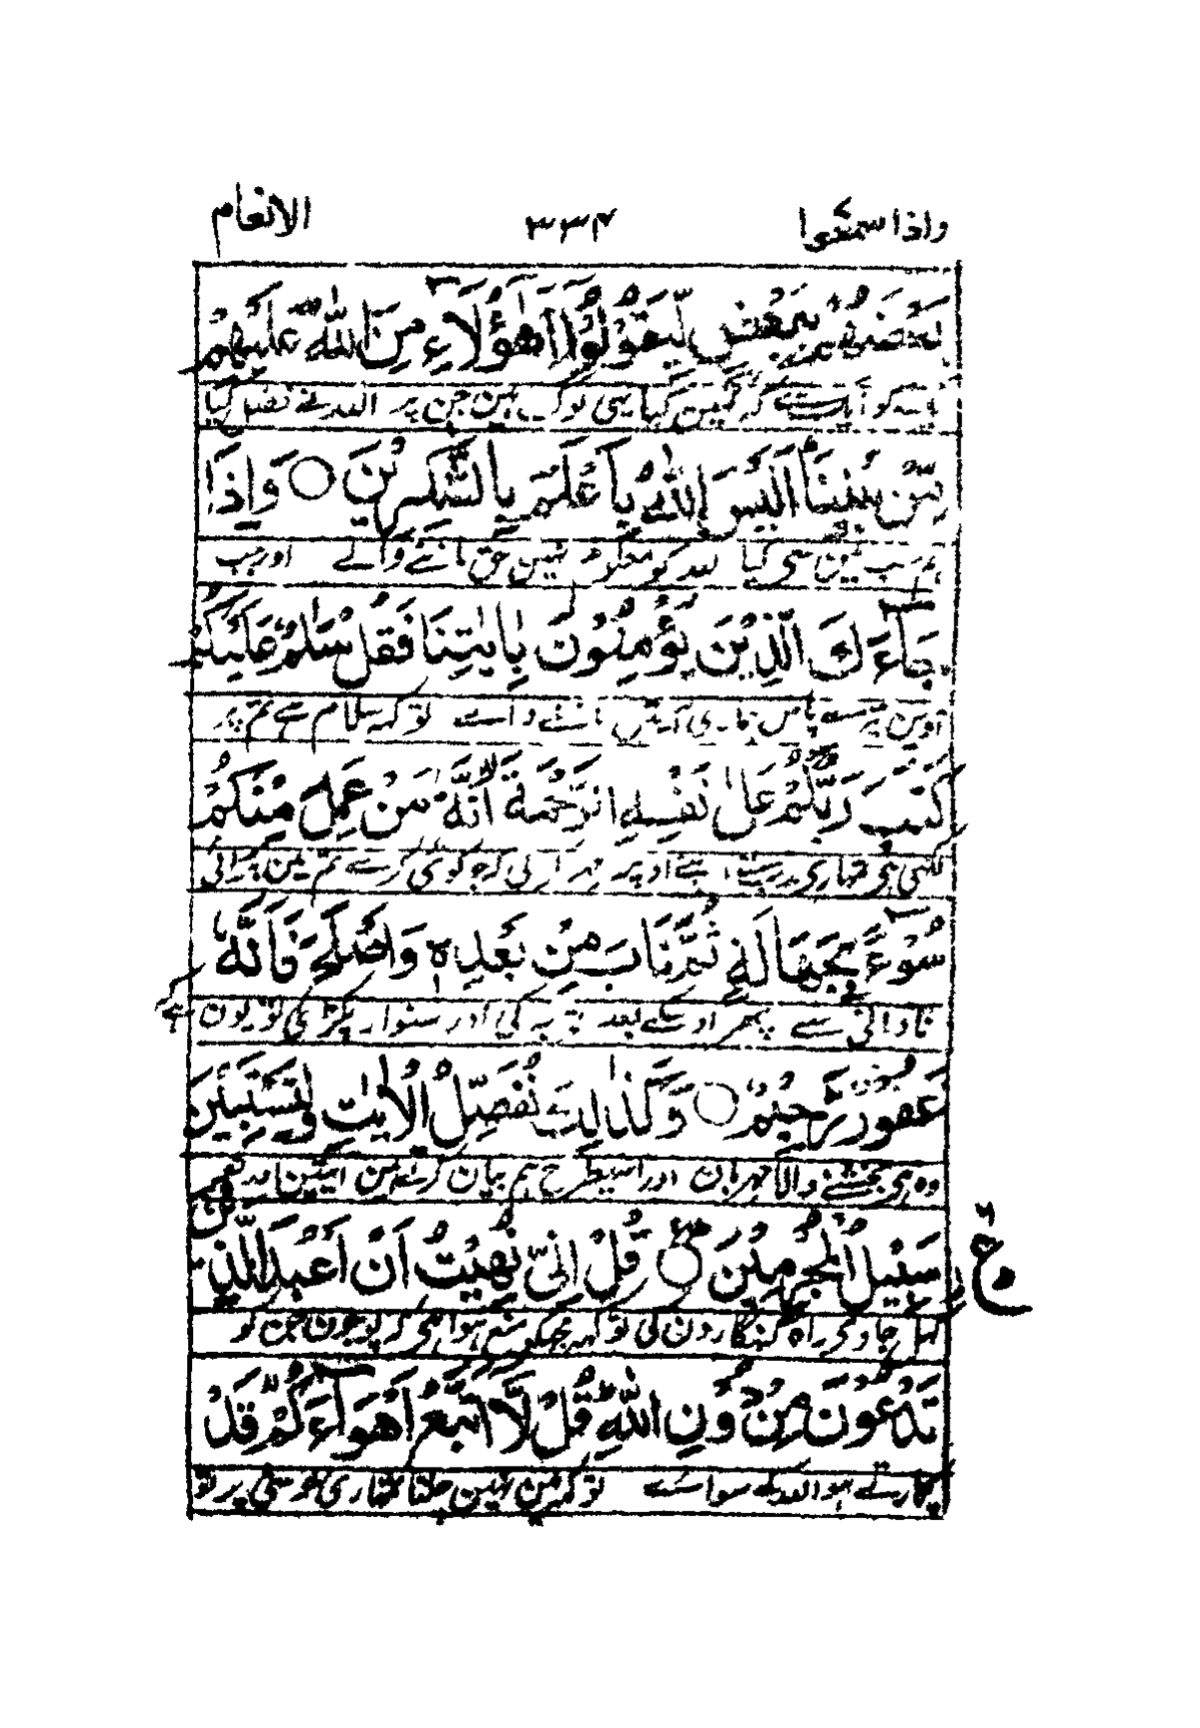 واذا سمعوا ۳۳۴ الانعام
بَعْضَهُمْ بِبَعْضٍ لِّيَقُوْلُوْٓا اَهٰٓؤُلَآءِ مَنَّ اللّٰهُ عَلَيْهِمْ
کو کہ کہین کیا یہی لوگ ہین جن پر اللہ نے فضل کیا
مِّنْۢ بَيْنِنَا اَلَيْسَ اللّٰهُ بِاَعْلَمَ بِالشّٰكِرِيْنَ ○ وَاِذَا
ہم سب مین سی کیا معلوم نہین حق ماننے والے اور جب
جَآءَكَ الَّذِيْنَ يُؤْمِنُوْنَ بِاٰيٰتِنَا فَقُلْ سَلٰمٌ عَلَيْكُمْ
آوین تیرے پاس ہماری آیتین ماننے والے تو کہہ سلام ہے تم پر
كَتَبَ رَبُّكُمْ عَلٰى نَفْسِهِ الرَّحْمَةَ اَنَّهٗ مَنْ عَمِلَ مِنْكُمْ
لکھی ہی تمہاری رب نے اپنے اوپر مہر کرنی کہ جو کوئی کرے تم مین برائی
سُوْٓءًۢا بِجَهَالَةٍ ثُمَّ تَابَ مِنْۢ بَعْدِهٖ وَاَصْلَحَ فَاَنَّهٗ
نادانی سے پھر اوسکے بعد توبہ کی اور سنوار پکڑی تو یون ہے کہ
غَفُوْرٌ رَّحِيْمٌ ○ وَكَذٰلِكَ نُفَصِّلُ الْاٰيٰتِ وَلِتَسْتَبِيْنَ
وہ ہی بخشنے والا مہربان اور اسیطرح ہم بیان کرتے ہین آیتین اور
سَبِيْلُ الْمُجْرِمِيْنَ ○ قُلْ اِنِّيْ نُهِيْتُ اَنْ اَعْبُدَ الَّذِيْنَ
کھل جاوی راہ گنہگارون کی تو کہہ مجھکو منع ہوا ہی کہ پوجون جن کو
تَدْعُوْنَ مِنْ دُوْنِ اللّٰهِ قُلْ لَّآ اَتَّبِعُ اَهْوَآءَكُمْ قَدْ
پکارتے ہو اللہ کے سواے تو کہہ مین نہین چلتا تمہاری خوشی پر تو